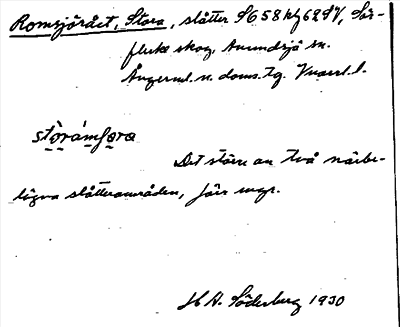 Romsjörået, Stora, slåtter S658hf62SV, Sör-
flärke skog, Anundsjö sn.
Ångerml. n. doms. tg. Vnorrl. l.
störámfara
Det större av två närbe-
lägna slåtterområden, före myr.
H A. Söderberg 1930